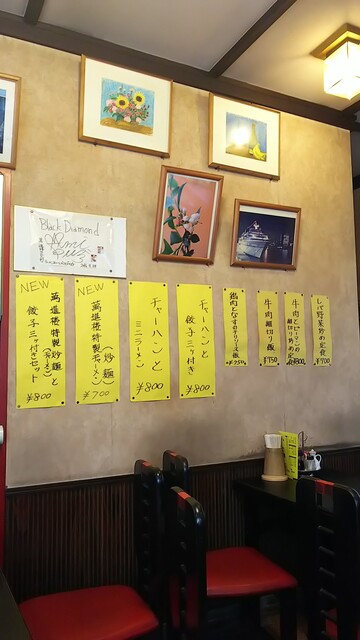 Black Diamond
NEW
萬進楼特製炒麺と
(ラーメン)
餃子三ヶ付きセット
¥800
NEW
萬進楼特製(炒麺)
ラーメン
¥700
チャーハンと
ミニラーメン
¥800
チャーハンと
餃子三ヶ付き
¥800
鶏肉となすのチリソース飯
¥750
牛肉細切り飯
¥750
牛肉とピーマンの
細切り炒め定食
¥800
レバ野菜炒め定食
¥700